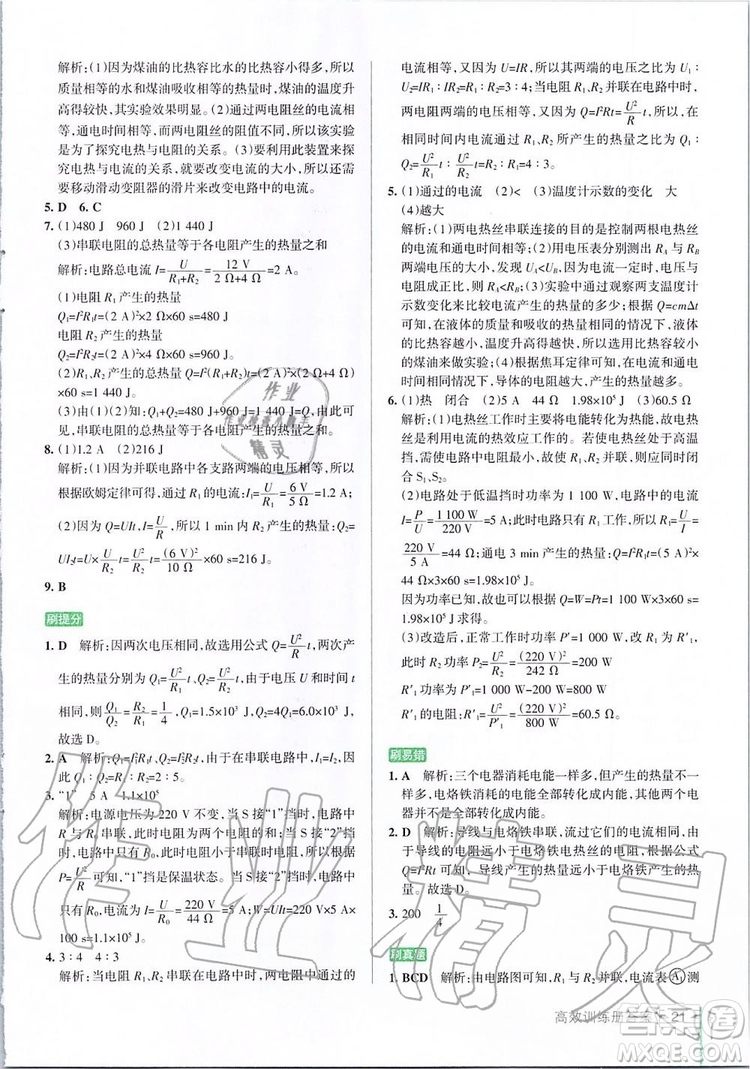 解析:(1)因为煤油的比热容比水的比热容小得多,所以
质量相等的水和煤油吸收相等的热量时,煤油的温度升
高得较快,其实验效果明显。(2)通过两电阻丝的电流相
等,通电时间相等,而两电阻丝的阻值不同,所以该实验
是为了探究电热与电阻的关系。(3)要利用此装置来探
究电热与电流的关系,就要改变电路中的电流,因此需
要移动滑动变阻器的滑片来改变电路中的电流。
5. D 6. C
7. (1)480 J 960 J (2)1 440 J
(3)串联电阻的总热量等于各电阻产生的热量之和
解析:电路总电流 I=U/(R₁+R₂)=12 V/(2 Ω+4 Ω)=2 A。
(1)电阻 R₁ 产生的热量
Q₁=I²R₁t=(2 A)²×2 Ω×60 s=480 J
电阻 R₂ 产生的热量
Q₂=I²R₂t=(2 A)²×4 Ω×60 s=960 J。
(2)R₁、R₂ 产生的总热量 Q=I²(R₁+R₂)t=(2 A)²×(2 Ω+4 Ω)
×60 s=1 440 J。
(3)由(1)(2)知,Q₁+Q₂=480 J+960 J=1 440 J=Q,即串
联电阻的总热量等于各电阻产生的热量之和。
8. (1)1.2 A (2)216 J
解析:(1)因为并联电路中各支路两端的电压相等,所以
根据欧姆定律可得:I₁=U/R₁=6 V/5 Ω=1.2 A。
(2)因为 Q=UIt,I=U/R,所以 1 min 内 R₂ 产生的热量:Q=
UI₂t=U×U/R₂ t=U²/R₂ t=(6 V)²/10 Ω×60 s=216 J。
9. B
刷提分
1. D 解析:因两次电压相同,故选用公式 Q=U²/R t,两次产
生的热量分别为 Q₁=U²/R₁ t,Q₂=U²/R₂ t,由于电压 U 与时间 t
相同,则 Q₁/Q₂=R₂/R₁=1/4,Q₁=1.5×10³ J,则 Q₂=6×10³ J,
故选 D。
2. A 解析:Q₁=I₁²R₁t,Q₂=I₂²R₂t,由于在串联电路中,I₁=I₂,
所以 Q₁:Q₂=I₁²R₁t:I₂²R₂t=R₁:R₂=2:5。
3. “1” 5 A 1.1×10⁵
解析:电源电压为 220 V 不变,当 S 接“1”挡时,电路中
R 与 R₀ 串联,此时电路中电阻较大,而电流较小,由 P=
U²/R可知,“1”挡是保温状态。当 S 接“2”挡时,电路中只
有 R₀,I=U/R₀=220 V/44 Ω=5 A,Q=W=UIt=220 V×5 A×
100 s=1.1×10⁵ J。
4. 3:4 4:3
解析:当电阻 R₁、R₂ 串联在电路中时,两电阻中的
电流相等,因为 U=IR,所以其两端的电压之比为 U₁:
U₂=R₁:R₂=3:4;当电阻 R₁、R₂ 并联在电路中时,
两电阻两端的电压相等,又因为 Q=I²Rt=U²/R t,所以在
相同时间内电阻产生的热量之比为 Q₁:Q₂=
U²/R₁ t:U²/R₂ t=1/R₁:1/R₂=4:3。
5. (1)通过的电流 (2)< (3)温度计示数的变化 大
(4)越大
解析:(1)两电热丝串联连接的目的是控制两根电热丝
的电流和通电时间相等。(2)用电压表分别测出 RA 与 RB
两端的电压大小,发现 UA<UB,因为电流一定时,电压与
电阻成正比,则 RA<RB。(3)实验中通过观察两支温度计
示数变化来比较电流产生的热量的多少;根据 Q=cmΔt
可知,在液体的质量和吸收热量相同的情况下,液体的
比热容越小,温度升高得越大,所以选用比热容较小
的煤油来做实验。(4)根据焦耳定律可得,在电流和通电
时间相同时,导体的电阻越大,产生的热量越多。
6. (1)热 闭合 (2)5 A 44 Ω 1.98×10⁵ J (3)60.5 Ω
解析:(1)电热丝工作时主要将电能转化为热能,故电热
丝是利用电流的热效应工作的。若使电热丝处于高温
挡,R₁ 与 R₂ 应并联,此时总电阻最小,功率最大,则需闭
合 S₁、S₂。
(2)电路处于低温挡时功率为 1 100 W,则此时的电流
I=P/U=1 100 W/220 V=5 A;此时电路只有 R₁ 工作,所以 R₁=U/I=
220 V/5 A=44 Ω;通电 3 min 产生的热量:Q=I²R₁t=(5 A)²×
44 Ω×3×60 s=1.98×10⁵ J。
因为功率不变,故产生的热量也可以为 Q=W=Pt=1 100 W×3×60 s=
1.98×10⁵ J。
(3)改造后,正常工作时电功率 P′=1 000 W,则由 R₂ 和 R′₁ 并联
此时 R₂ 功率 P₂=U²/R₂=(220 V)²/242 Ω=200 W。
R′₁ 功率 P′₁=P′-P₂=1 000 W-200 W=800 W
R′₁=U²/P′₁=(220 V)²/800 W=60.5 Ω。
刷易错
1. A 解析:三个电器消耗电能一样多,但产生的热量不
一样多,电热器消耗的电能全部转化成内能,其他两个电
器并不是全部转化成内能。
2. D 解析:导线与电烙铁串联,流过它们的电流相同,由
于导线的电阻远远小于电烙铁电热丝的电阻,由 Q=
I²Rt 可知,导线产生热量远远小于电烙铁产生热量,故
选 D。
3. 200 1/4
刷真题
1. BCD 解析:由电路图可知,R₁ 与 R₂ 并联,电流表 A₁ 测
高效训练册答案 21
作业
作业检查小帮手
精灵
作业精灵
MXQE.COM